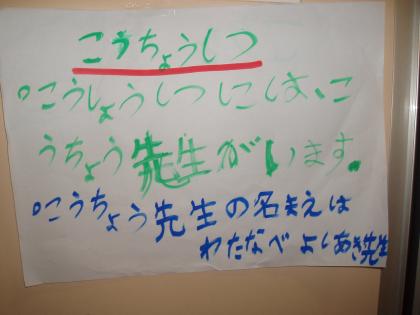 こうちょうしつ
°こうしょうしつには、こ
うちょう先生がいます。
°こうちょう先生の名まえは
わたなべ よしあき先生